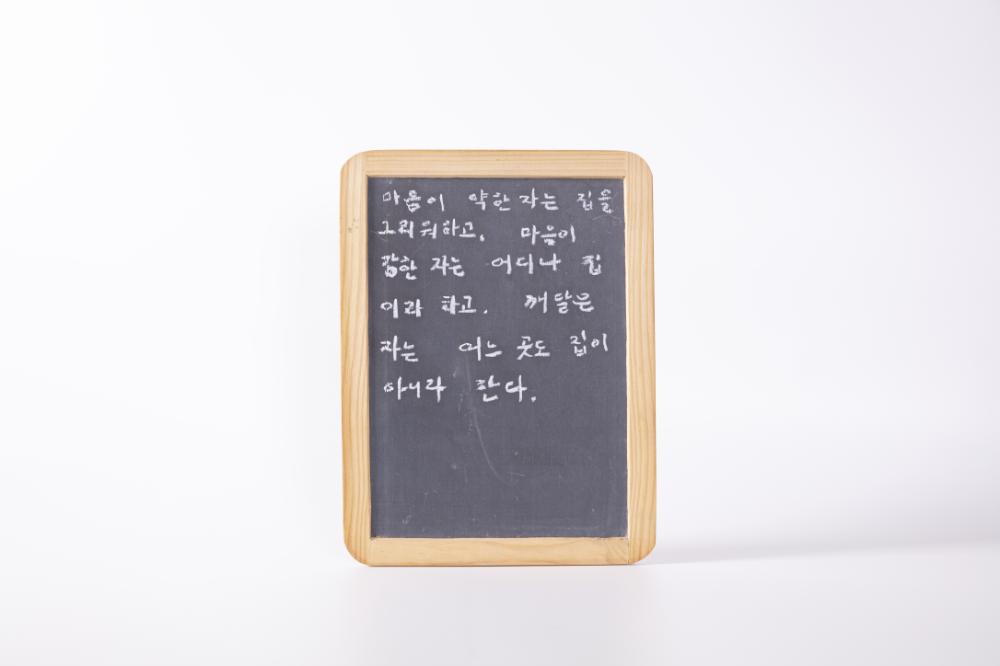 마음이 약한 자는 집을
그리워하고, 마음이
강한 자는 어디나 집
이라 하고, 깨달은
자는 어느 곳도 집이
아니라 한다.